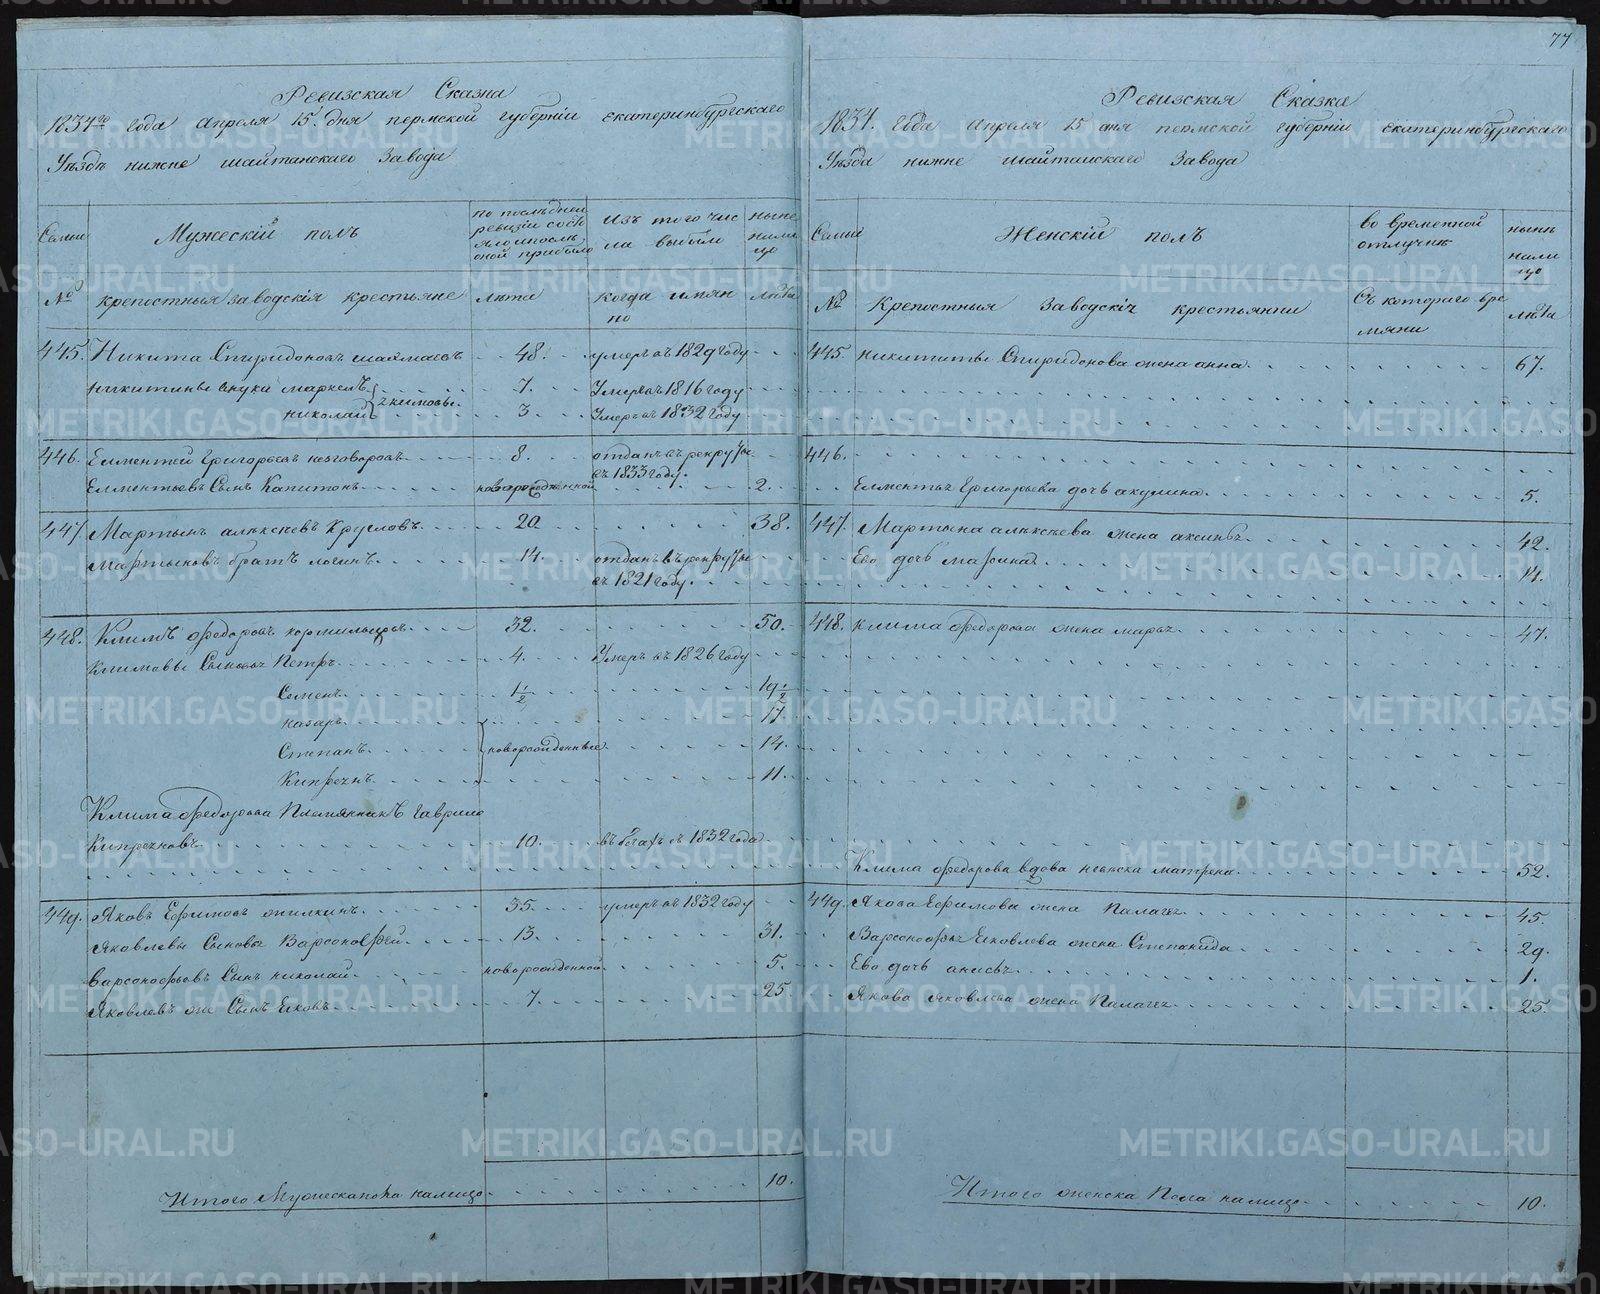 Ревизская Сказка
1834го года апреля 15. дня пермской губернiи екатеринбургскаго
Уѣзда нижне шайтанскаго завода
Семьи
Мужескiй полъ
по послѣдней ревизiи состояло и послѣ оной прибыло
Изъ того числа выбыло
ныне на лицо
№
крепостныя заводскiя крестьяне
лѣта
когда имянно
лѣта
445. Никита Спиридоновъ 48. умеръ въ 1829 году
никитины внуки маркелъ 7. Умеръ въ 1816 году
николай 3. Умеръ въ 1832 году
446. Елментей григорьевъ незговоровъ 8. отданъ въ рекруты
въ 1833 году.
Елментьевъ Сынъ Капитонъ новорожденной 2.
447. Мартынъ алѣксѣевъ Кругловъ 20 38.
Мартыновъ братъ логинъ 14. отданъ въ рекруты
въ 1821 году.
448. Климъ федоровъ кормильцовъ 32. 50.
Климовы Сыновья Петръ 4. Умеръ въ 1826 году
Семенъ 1 1/2 19 1/2
назаръ 17
Степанъ новорожденные 14.
Кипреянъ 11.
Клима федорова Племянникъ гаврило
Кипреяновъ 10. въ бегахъ съ 1832 года
449. Яковъ Ефимовъ жилкинъ 35. умеръ въ 1832 году
Яковлевы Сыновья Варсонофей 13. 31.
Варсонофьевъ Сынъ николай новорожденной 5.
Яковлевъ же Сынъ Яковъ 7. 25
Итого Мужеска пола налицо 10.
77
Ревизская Сказка
1834. года апреля 15 дня пермской губернiи екатеринбургскаго
Уѣзда нижне шайтанскаго завода
Семьи
Женскiй полъ
во временной отлучкѣ
нынѣ налицо
№
Крепостныя заводскiя крестьянки
Съ котораго времяни
лѣта
445. никитины Спиридонова жена анна 67.
446.
Елментья Григорьева дочь акулина 5.
447. Мартына алѣксѣева жена аксинья 42.
Ево дочь 14.
448. клима федорова жена марья 47.
Клима федорова вдова невѣска матрена 52.
449. Якова Ефимова жена Палагея 45.
Варсонофья Яковлева жена Степанида 29.
Ево дочь анисья 1.
Якова яковлева жена Палагея 25.
Итого женска Пола налицо 10.
METRIKI.GASO-URAL.RU